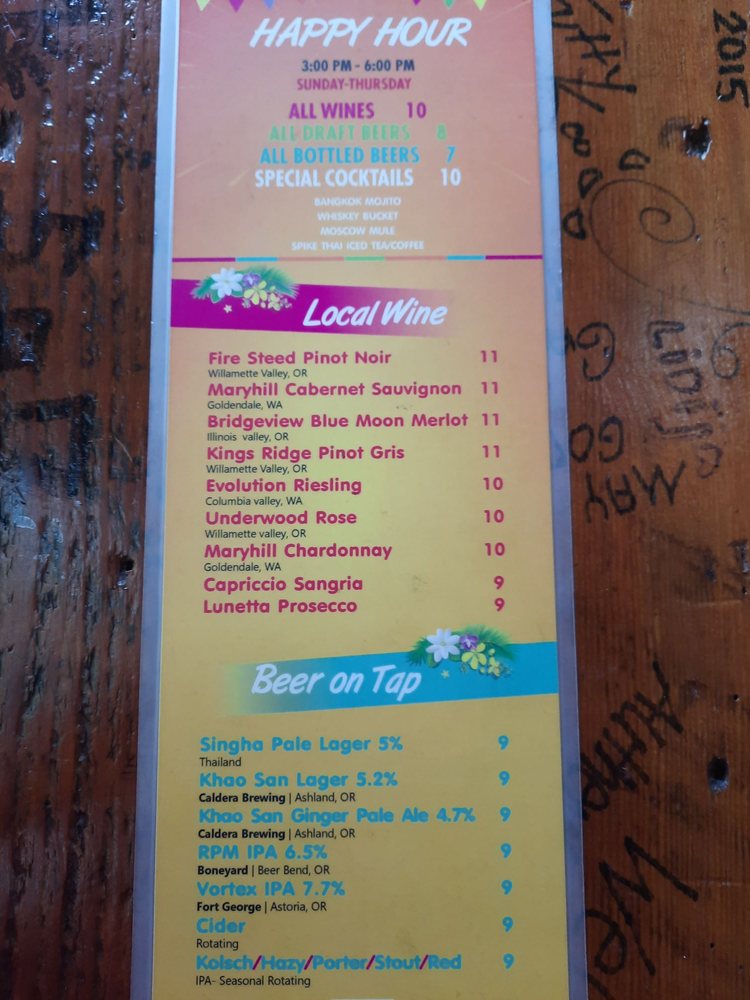 HAPPY HOUR
3:00 PM - 6:00 PM
SUNDAY-THURSDAY
ALL WINES 10
ALL DRAFT BEERS 8
ALL BOTTLED BEERS 7
SPECIAL COCKTAILS 10
BANGKOK MOJITO
WHISKEY BUCKET
MOSCOW MULE
SPIKE THAI ICED TEA/COFFEE
Local Wine
Fire Steed Pinot Noir 11
Willamette Valley, OR
Maryhill Cabernet Sauvignon 11
Goldendale, WA
Bridgeview Blue Moon Merlot 11
Illinois valley, OR
Kings Ridge Pinot Gris 11
Willamette Valley, OR
Evolution Riesling 10
Columbia valley, WA
Underwood Rose 10
Willamette valley, OR
Maryhill Chardonnay 10
Goldendale, WA
Capriccio Sangria 9
Lunetta Prosecco 9
Beer on Tap
Singha Pale Lager 5% 9
Thailand
Khao San Lager 5.2% 9
Caldera Brewing | Ashland, OR
Khao San Ginger Pale Ale 4.7% 9
Caldera Brewing | Ashland, OR
RPM IPA 6.5% 9
Boneyard | Beer Bend, OR
Vortex IPA 7.7% 9
Fort George | Astoria, OR
Cider 9
Rotating
Kolsch/Hazy/Porter/Stout/Red 9
IPA- Seasonal Rotating
2015
MAY